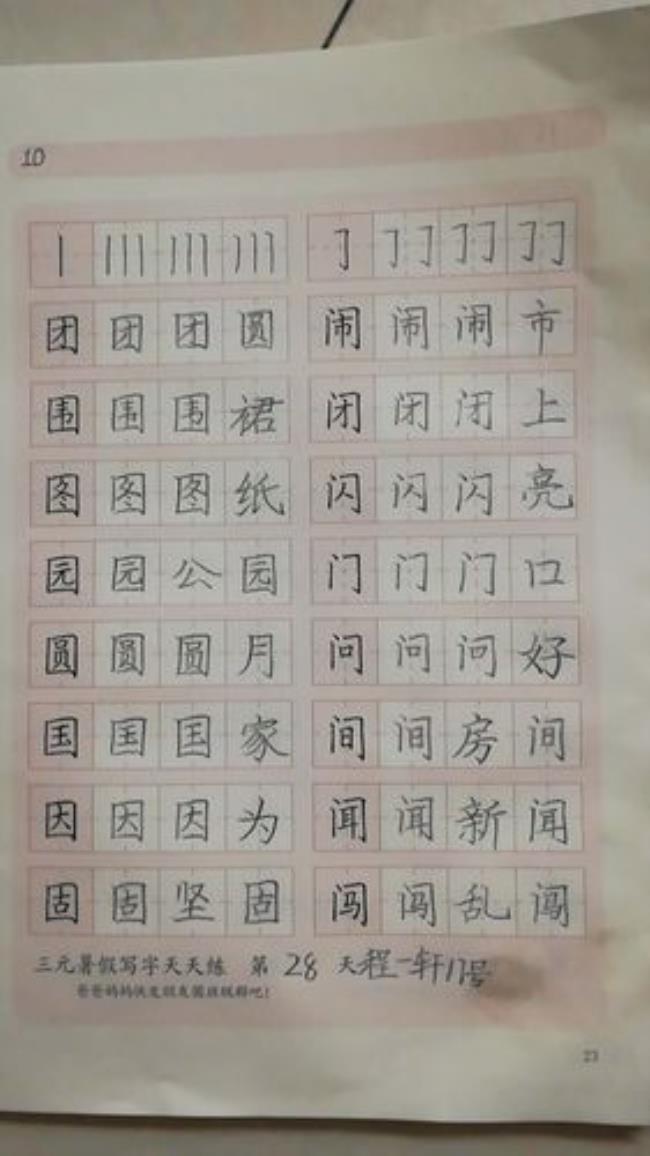 10
团团团圆 闹闹闹市
围围围裙 闭闭闭上
图图图纸 闪闪闪亮
园园公园 门门门口
圆圆圆月 问问问好
国国国家 间间房间
因因因为 闻闻新闻
固固坚固 闯闯乱闯
三元暑假写字天天练 第28天程一轩17号
爸爸妈妈快发朋友圈班级群吧！
23